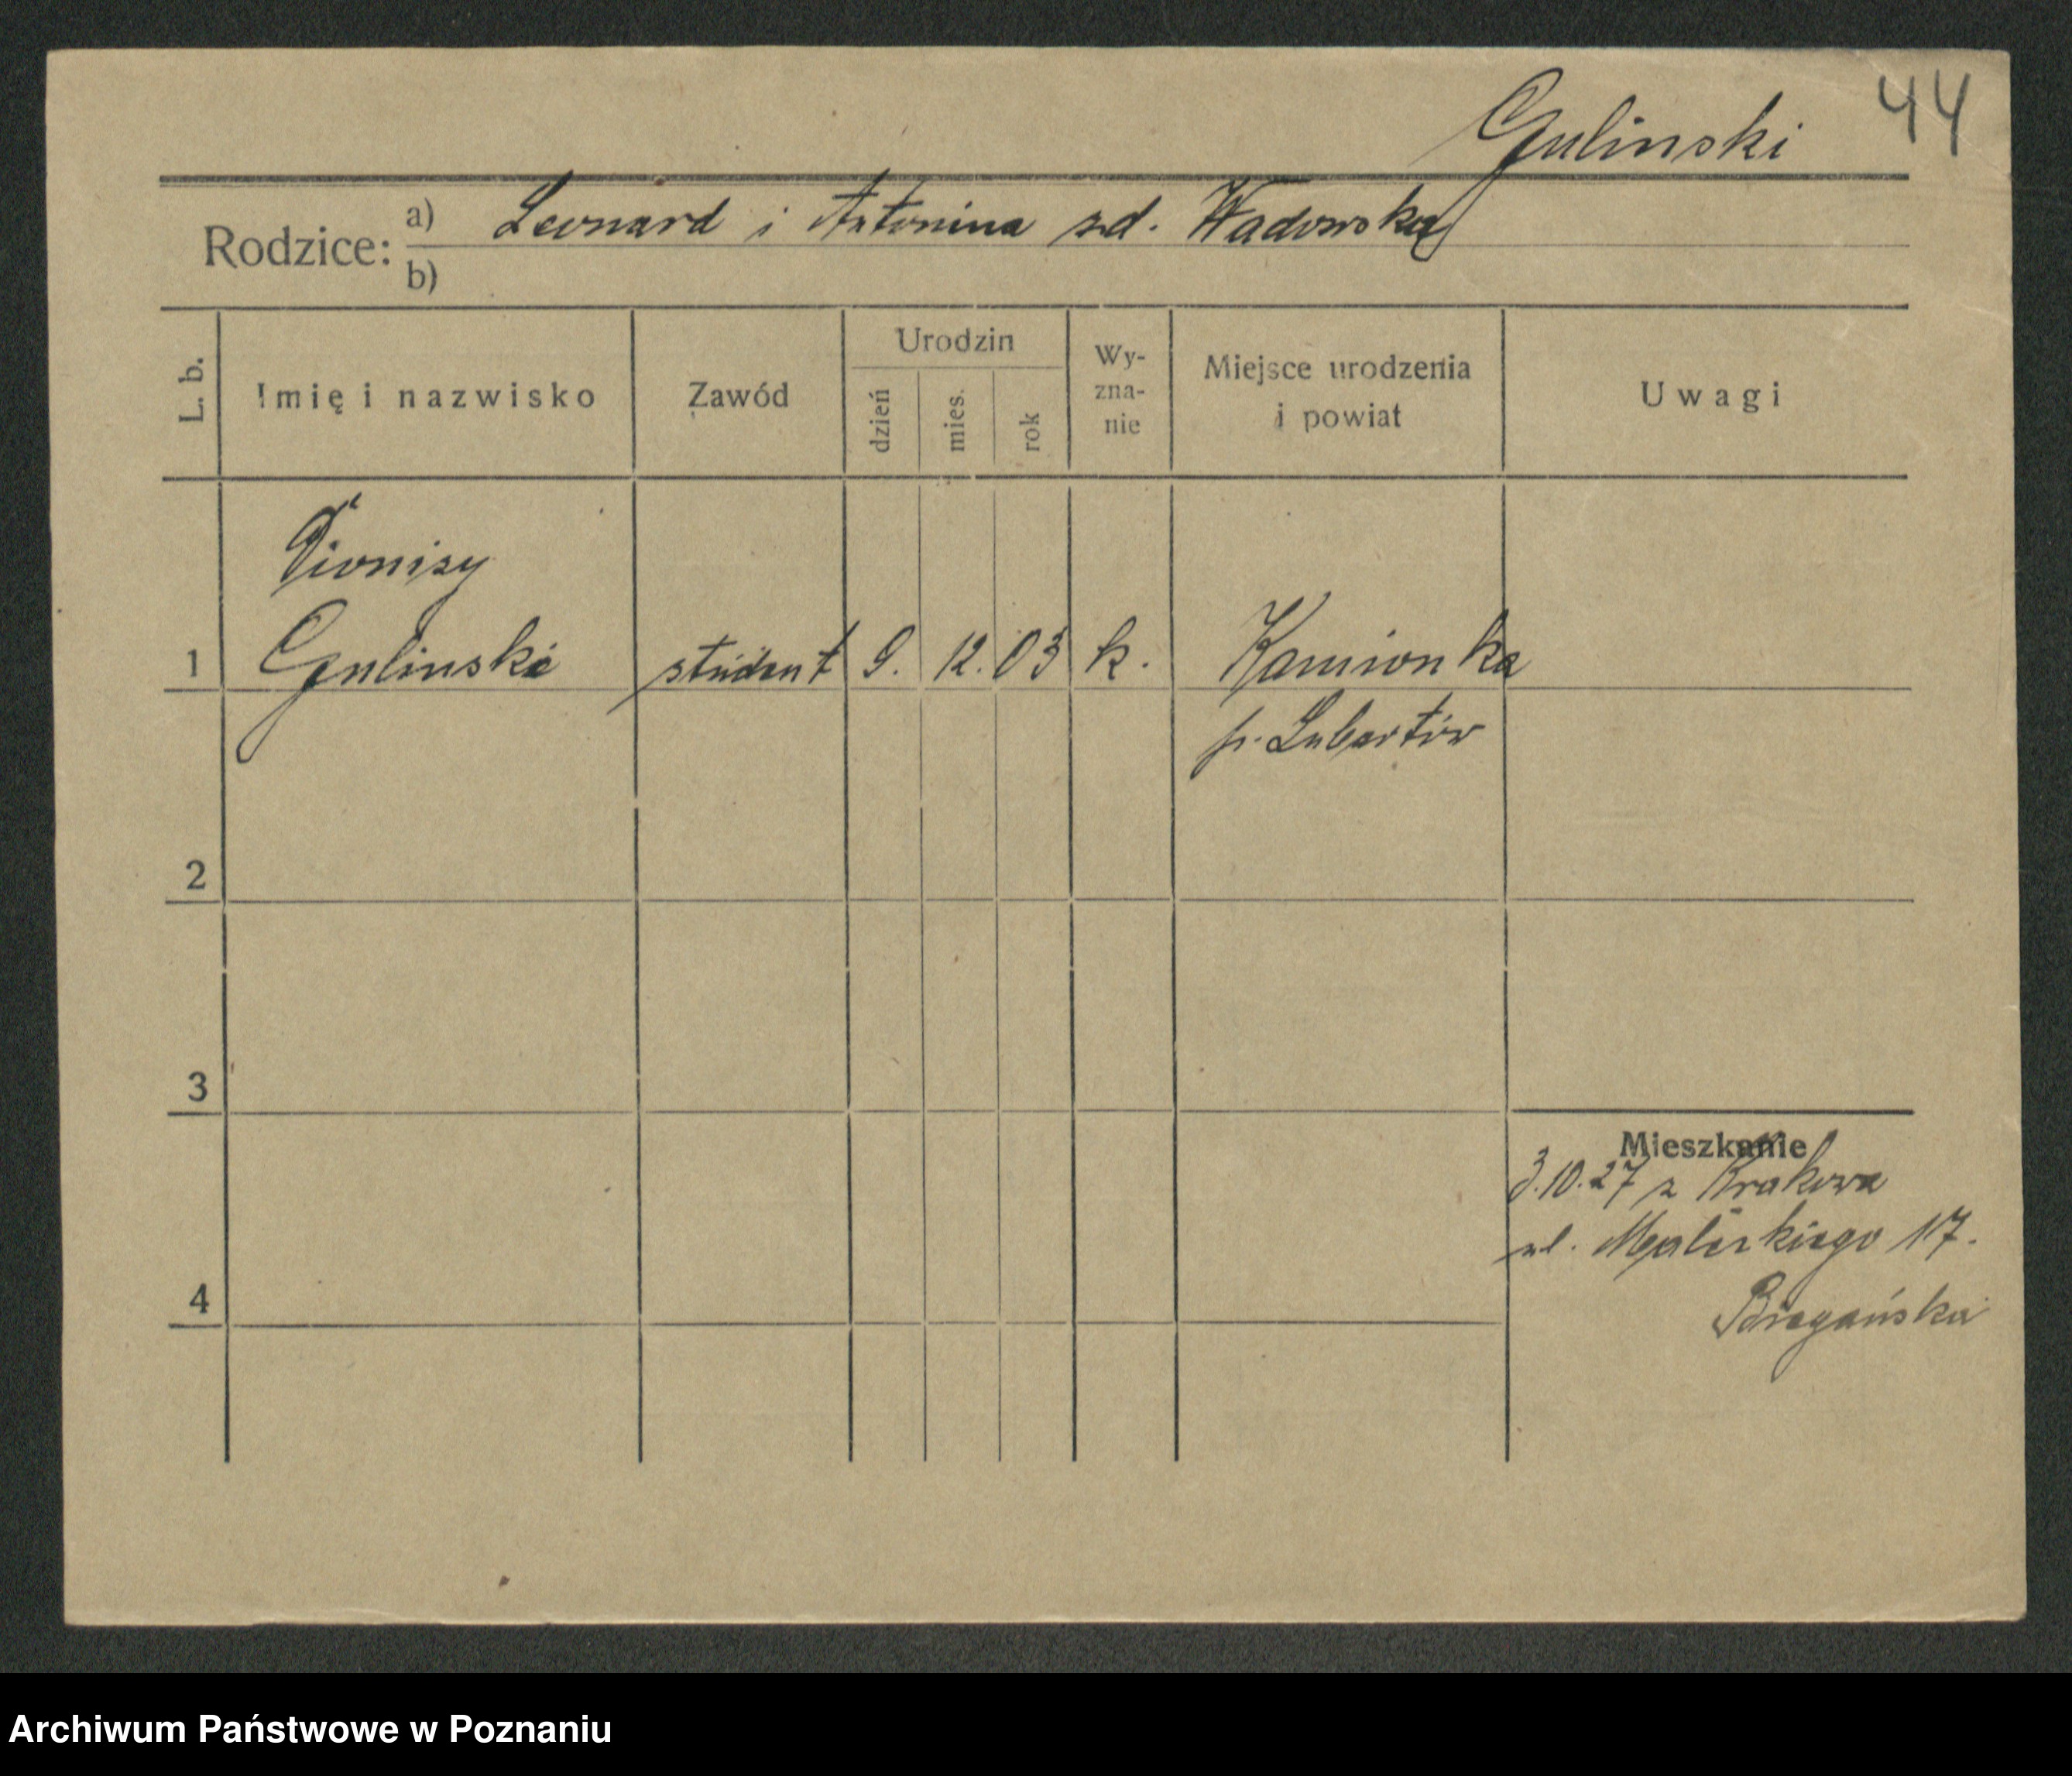 Gulinski 44
Rodzice: a) Leonard i Antonina zd. Wadowska
b)
L. b. Imię i nazwisko Zawód Urodzin dzień mies. rok Wy-zna-nie Miejsce urodzenia i powiat Uwagi
Dionisy
1 Gulinski student 9. 12. 03 k. Kamionka
p. Lubartów
2
3
Mieszkanie
3.10.27 z Krakowa
ul. 17.
4
Archiwum Państwowe w Poznaniu